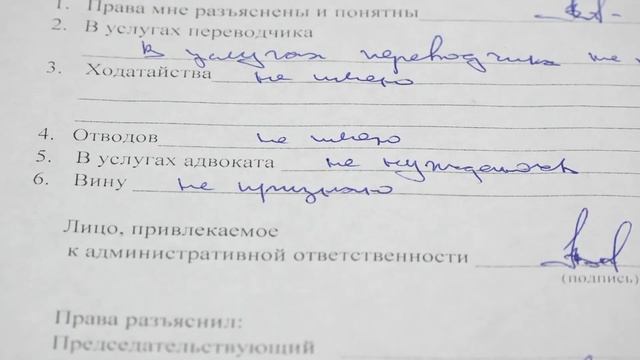 1. Права мне разъяснены и понятны
2. В услугах переводчика
В услугах переводчика не
3. Ходатайства не имею
4. Отводов не имею
5. В услугах адвоката не нуждаюсь
6. Вину не признаю
Лицо, привлекаемое
к административной ответственности
(подпись)
Права разъяснил:
Председательствующий